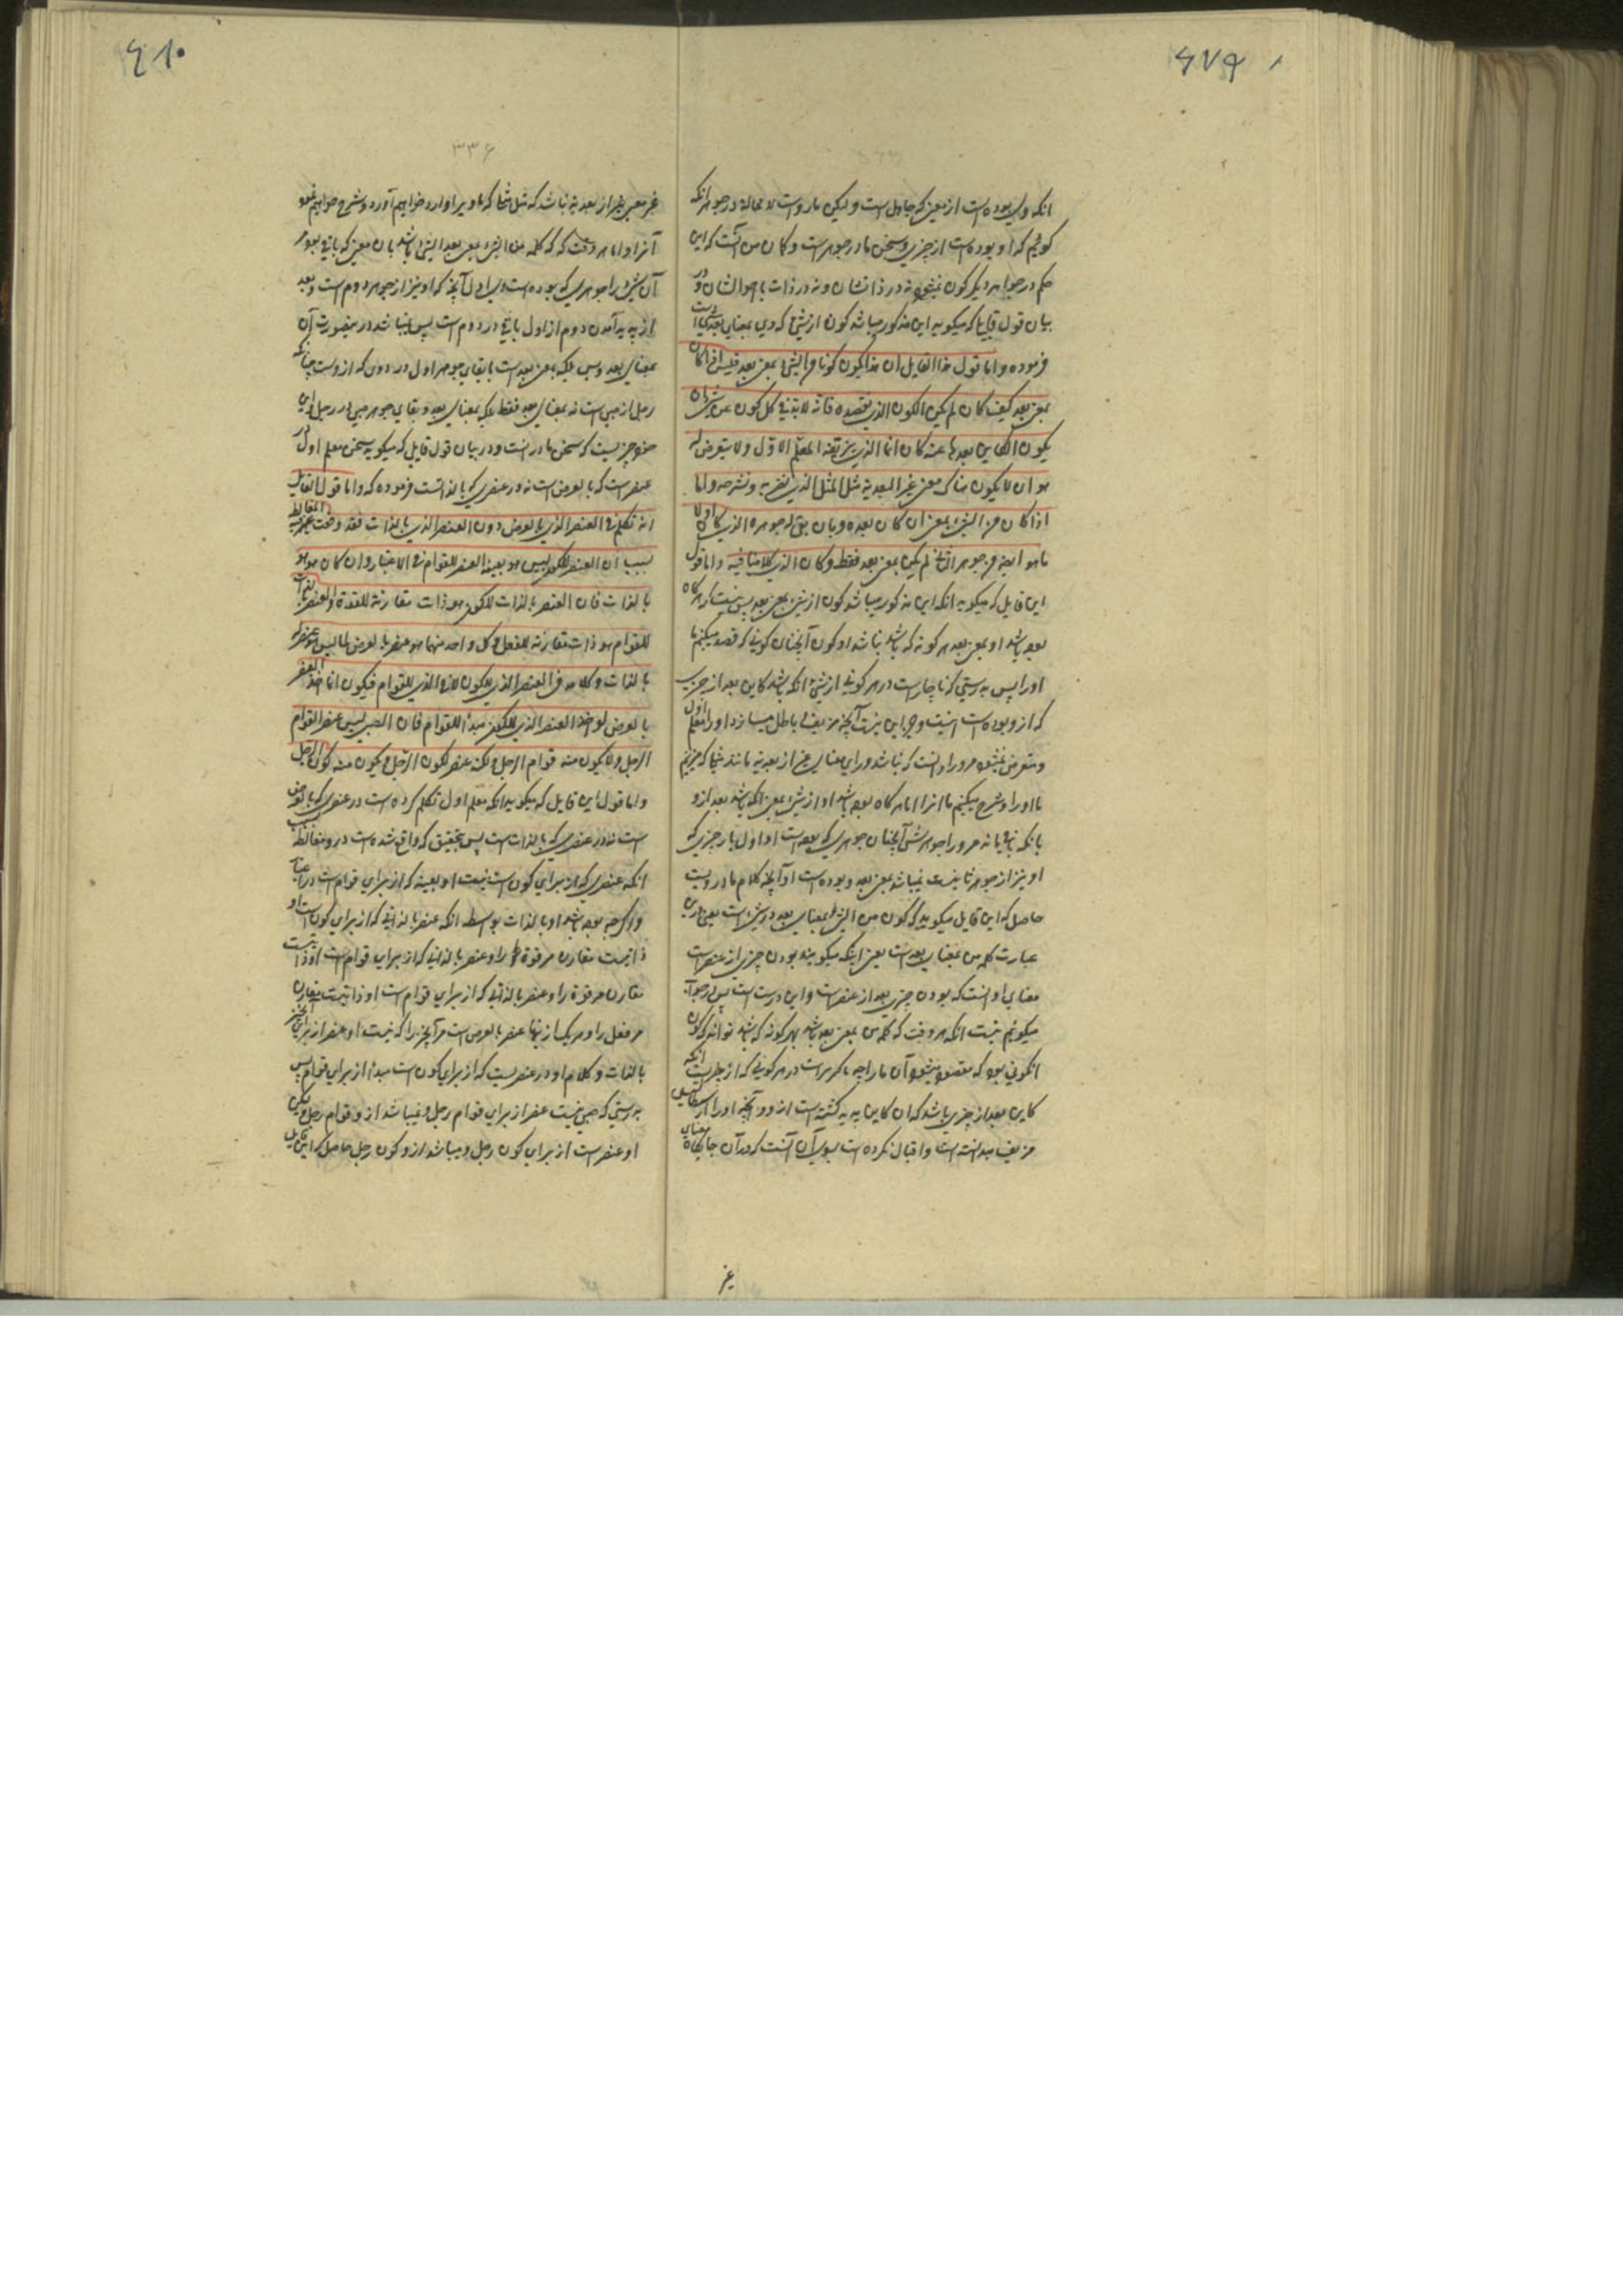 ۶۷۹
انکه وی بوده است از معنی که جاهل است و لیکن ما رواست لا محاله در جوهر انکه
کوئیم که او بوده است از چیزی و سخن ما در جوهر است و کان من آنست که این
حکم در جواهر دیگر کون نمیشود نه در ذاتشان و نه در ذات با احوالشان و در
بیان قول قایل که میکوید این مذکور میباشد کون از شیء که وی بمعنای بعدی است
فرموده و اما قول هذا القایل ان هذا یکون کونا من الشیء بمعنی بعد فلیس اذا کان
بمعنی بعد کیف کان لم یکن الکون الذی نقصده فانه لا بد فی کل کون عن شیء ان
یکون الکاین بعد ما عنه کان انما الذی یزیفه المعلم الاول ولا یتعرض له
هو ان لا یکون هناک معنی غیر البعدیة مثل المثل الذی نضربه و نشرحه و اما
اذا کان من الشیء بمعنی ان کان بعده و بان بقی له جوهره الذی کان اولا
ما هو ایضا فی جوهر الثانی لم یکن بمعنی بعد فقط و کان الذی کلامنا فیه و اما قول
این قایل که میکوید انکه این مذکور میباشد کون از شیء بمعنی بعد پس نیست که هرکاه
بوده باشد او بمعنی بعد هر کونه که باشد نباشد او کون آنچنان کونی که قصد میکنیم ما
اورا پس بدرستی که ناچار است در هر کونی از شیء انکه باشد کاین بعد از چیزی
که از و بوده است اینست و جز این نیست آنچه مزیف و باطل میسازد او را معلم اول
و متعرض نمیشود مر او را آنست که نباشد ورای معنای غیر از بعدیه مانند مثالی که میزنیم
ما او را و شرح میکنیم ما انرا اما هرکاه بوده باشد او از شیء بمعنی انکه باشد بعد از و
بانکه باقی ماند مر او را جوهر شیء آنچنان جوهری که بوده است او اول بار چیزی که
او نیز از جوهر ثانیست نمیباشد بمعنی بعد و بوده است او آنچه کلام ما در ویست
حاصل که این قایل میکوید که کون من الشیء بمعنای بعد در شیء است یعنی در این
عبارت کلمه من بمعنای بعد است یعنی اینکه میکویند بودن چیزی از عنصر است
معنای او آنست که بودن چیزی بعد از عنصر است و این درست است پس در جواب
میکوئیم نیست انکه هر وقت که کلمه من بمعنی بعد باشد بهر کونه که باشد تواند که کون
انکونی بود که مقصود میشود آن ما را چه ناکزیر است در هر کونی که از چیزیست انکه
کاین بعد از چیزی باشد که ان کاین پدید کشته است از و و آنچه او را ارسطاطالیس
مزیف میدانسته است و اقبال نکرده است بسوی آن آنست که در آن جایکاه معنای
غیر
۶۸۰
۳۳۶
غیر معنی غیر از بعدیه نباشد که مثل مثالی که ما ویرا وارد خواهیم آورد و شرح خواهیم نمود
آنرا و اما هر وقت که که کلمه من الشیء بمعنی بعد الشیء باشد بان معنی که باقی بود مر
آن شیء را جوهری که بوده است وی اول آنچه که او نیز از جوهر دوم است و بعد
از پدید آمدن دوم از اول باقی در دوم است پس نباشد در ینصورت آن
بمعنای بعد و بس بلکه بمعنی بعد است با بقای جوهر اول در دومی که از وست چنانکه
رجل از صبی است نه بمعنای بعد فقط بلکه بمعنای بعد و بقای جوهر صبی در رجل و این
همو چیزیست که سخن ما در انست و در بیان قول قایل که میکوید سخن معلم اول در
عنصر است که بالعرض است نه در عنصری که بالذاتست فرموده که و اما قول القایل
انه تکلم فی العنصر الذی بالعرض دون العنصر الذی بالذات فقد وقعت المغالطة فیه
بسبب ان العنصر للکون لیس هو بعینه العنصر للقوام فی الاعتبار و ان کان هو هو
بالذات فان العنصر بالذات للکون هو ذات مقارنة للقوة و العنصر بالذات
للقوام هو ذات مقارنة للفعل و کل واحد منهما هو عنصر بالعرض لما لیس هو عنصرا له
بالذات و کلامه فی العنصر الذی للکون لا فی الذی للقوام فیکون انما اخذ العنصر
بالعرض لو اخذ العنصر الذی للکون مبدأ للقوام فان الصبی لیس عنصرا لقوام
الرجل و لا یکون منه قوام الرجل و لکنه عنصر لکون الرجل و یکون منه کون الرجل
و اما قول این قایل که میکوید انکه معلم اول تکلم کرده است در عنصری که بالعرض
است نه در عنصری که بالذات است پس بتحقیق که واقع شده است در و مغالطه بسبب
انکه عنصری که از برای کون است نیست او بعینه که از برای قوام است در اعتبار
و اکرچه بوده باشد او بالذات بواسطه انکه عنصر بالذاتی که از برای کون است او
ذاتیست مقارن مر قوة را و عنصر بالذاتی که از برای قوام است او ذاتیست
مقارن مر قوة را و عنصر بالذاتی که از برای قوام است او ذاتیست مقارن
مر فعل را و هر یک از اینها عنصر بالعرض است مر آنچیز را که نیست او عنصر از برای آنچیز
بالذات و کلام او در عنصریست که از برای کون است مبدأ از برای قوام پس
بدرستی که صبی نیست عنصر از برای قوام رجل و نمیباشد از و قوام رجل و لیکن
او عنصر است از برای کون رجل و میباشد از و کون رجل حاصل که این قایل